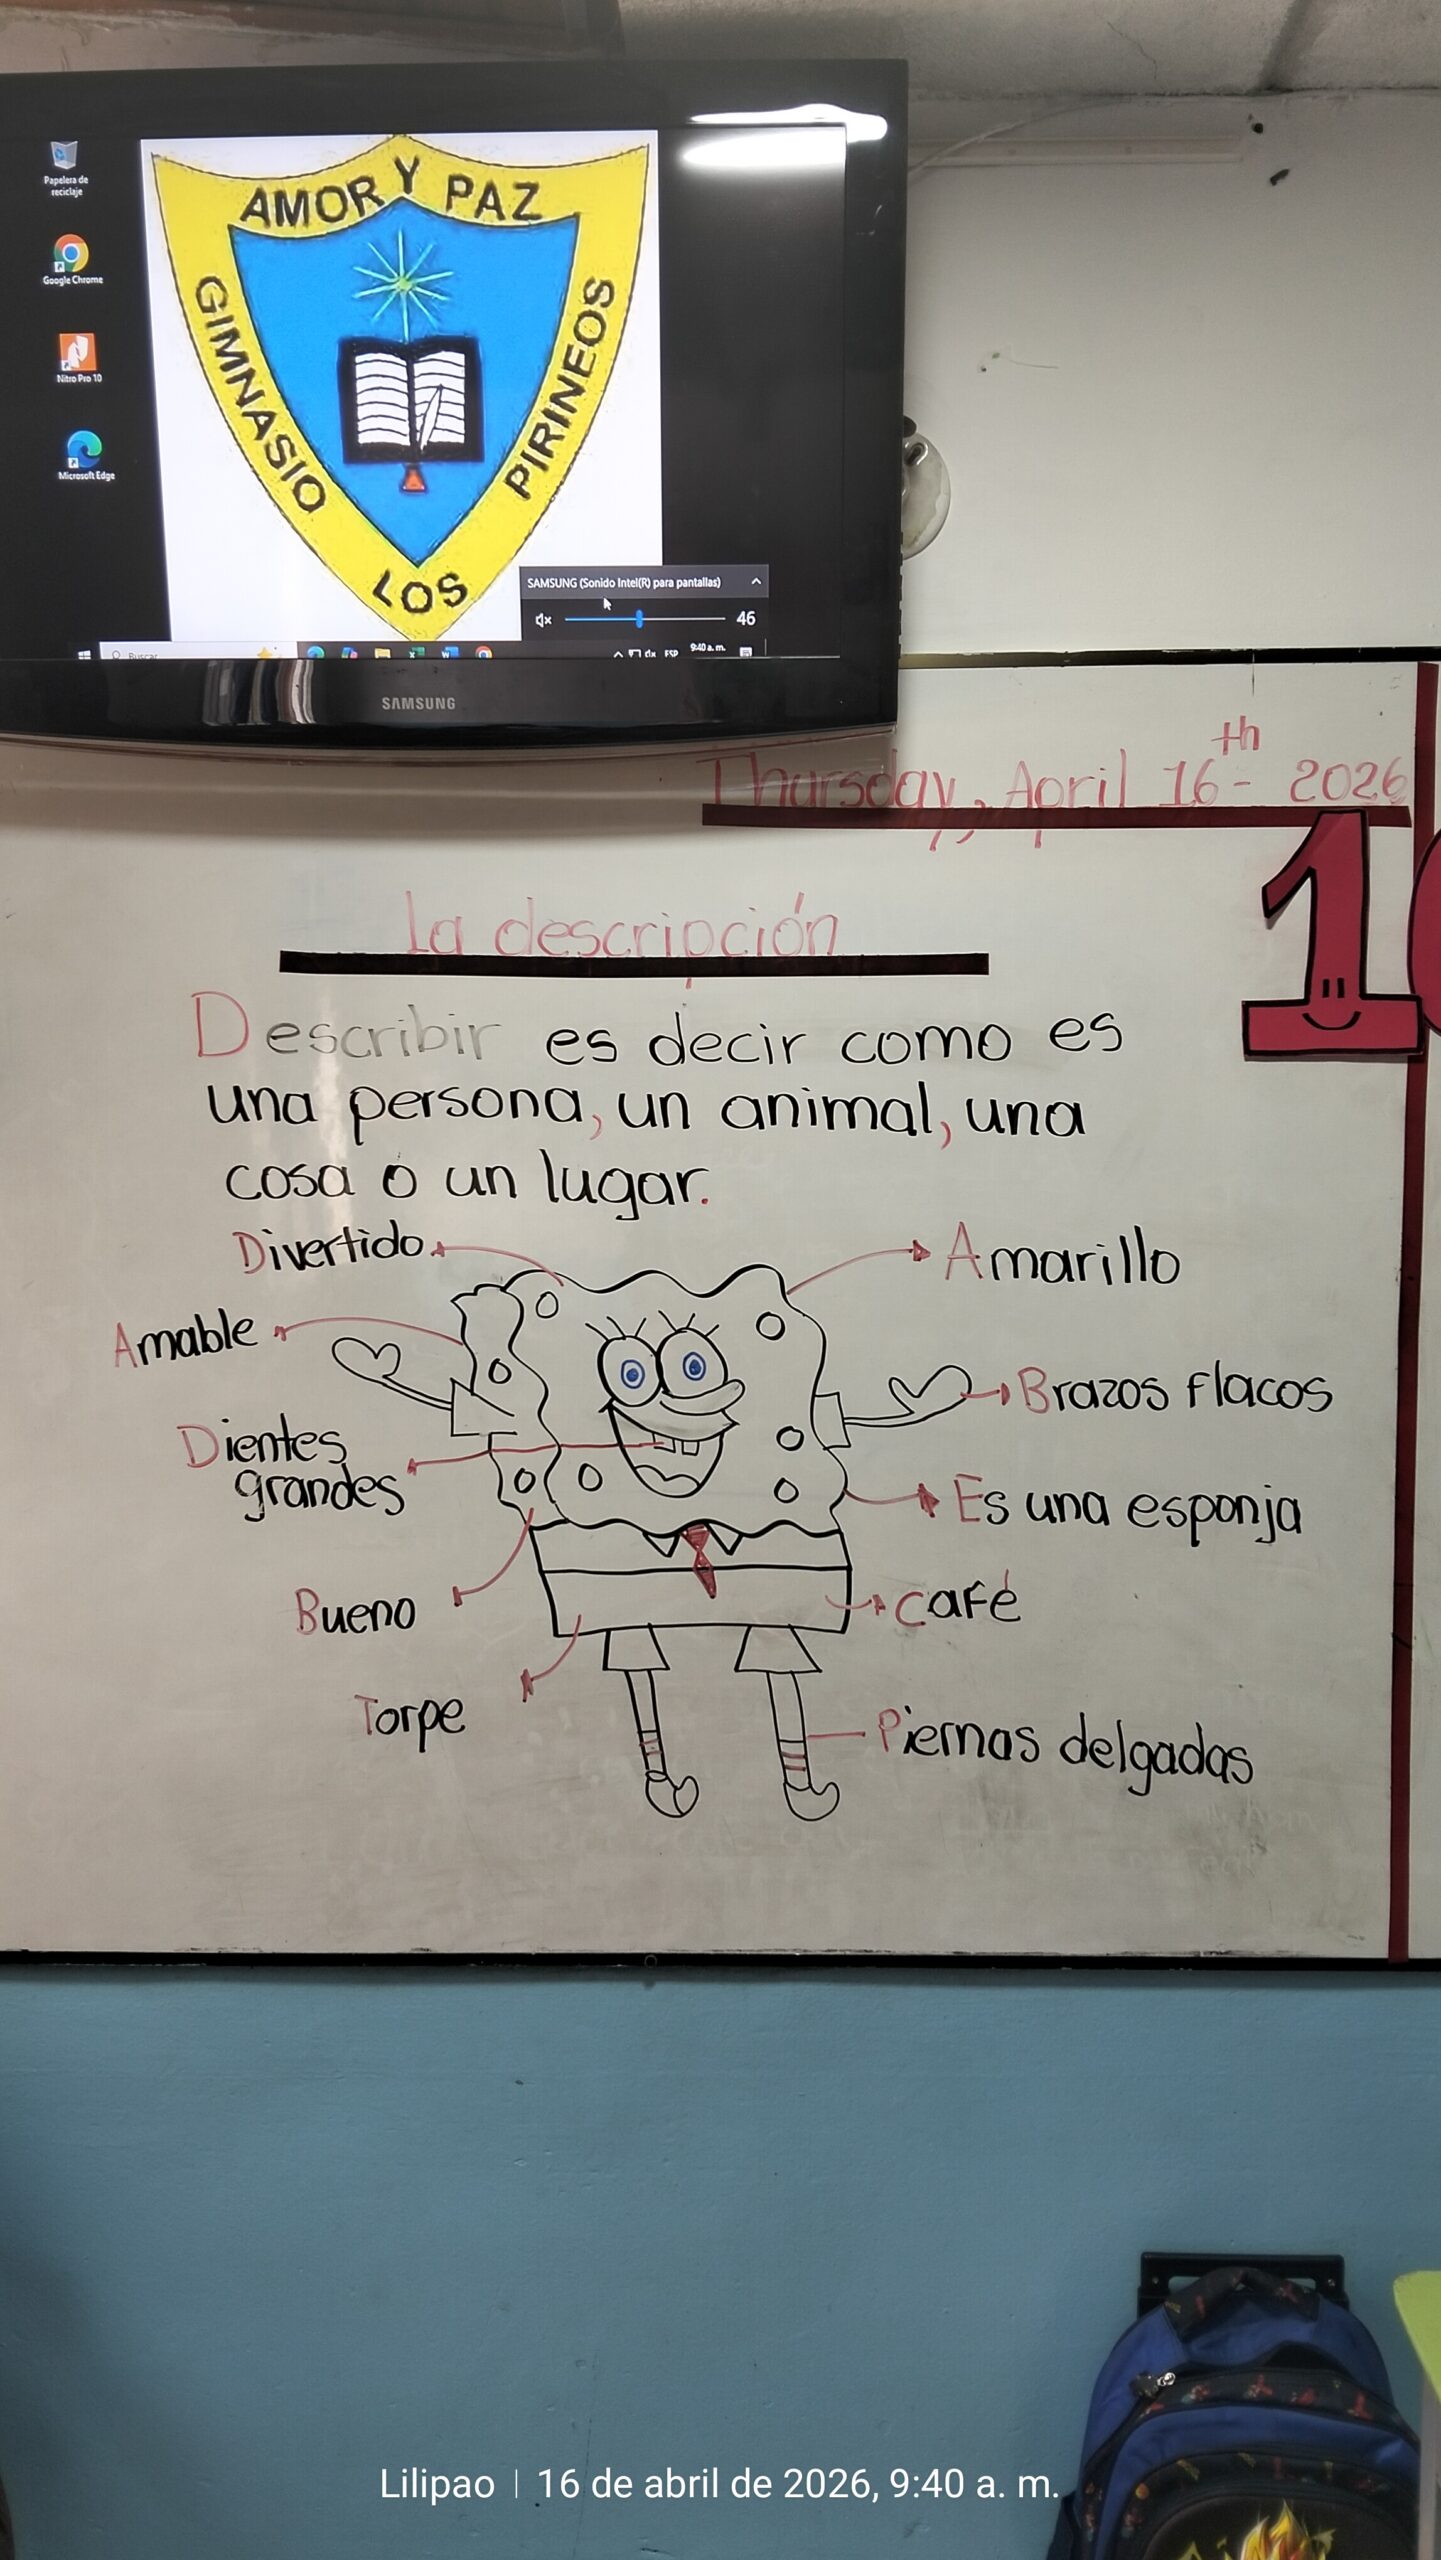 Papelera de
reciclaje
Google Chrome
Nitro Pro 10
Microsoft Edge
AMOR Y PAZ
GIMNASIO
LOS
PIRINEOS
SAMSUNG (Sonido Intel(R) para pantallas)
46
Buscar
ESP
9:40 a. m.
SAMSUNG
Thursday, April 16th - 2026
1
La descripción
Describir es decir como es
una persona, un animal, una
cosa o un lugar.
Divertido
Amarillo
Amable
Brazos flacos
Dientes
grandes
Es una esponja
Bueno
Café
Torpe
Piernas delgadas
Lilipao | 16 de abril de 2026, 9:40 a. m.